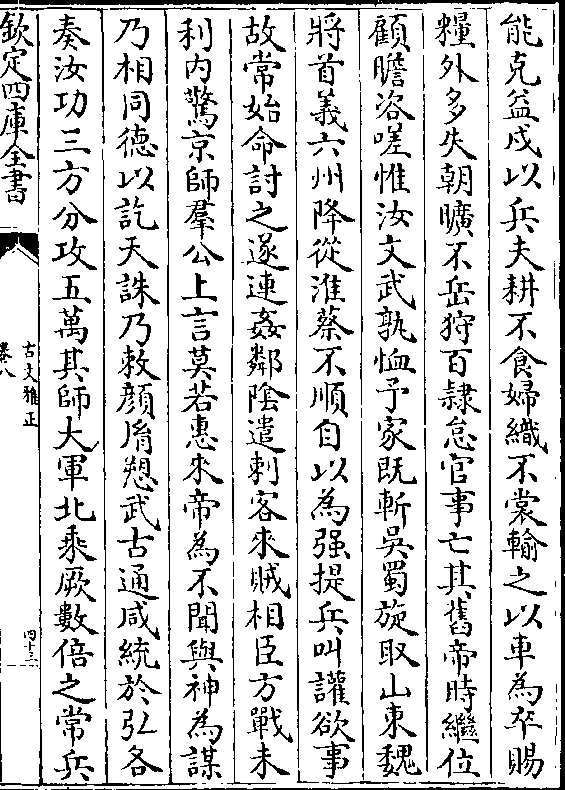 能克益戍以兵夫耕不食婦織不裳輸之以車為卒賜
糧外多失朝曠不岳狩百隸怠官事亡其舊帝時繼位
顧瞻咨嗟惟汝文武孰恤予家既斬吳蜀旋取山東魏
將首義六州降從淮蔡不順自以為强提兵叫讙欲事
故常始命討之遂連姦鄰隂遣刺客來賊相臣方戰未
利内驚京師羣公上言莫若惠來帝為不聞與神為謀
乃相同德以訖天誅乃敕顔𦙍愬武古通咸統於弘各
奏汝功三方分攻五萬其師大軍北乘厥數倍之常兵
欽定四庫全書
古文雅正
卷八
四十三